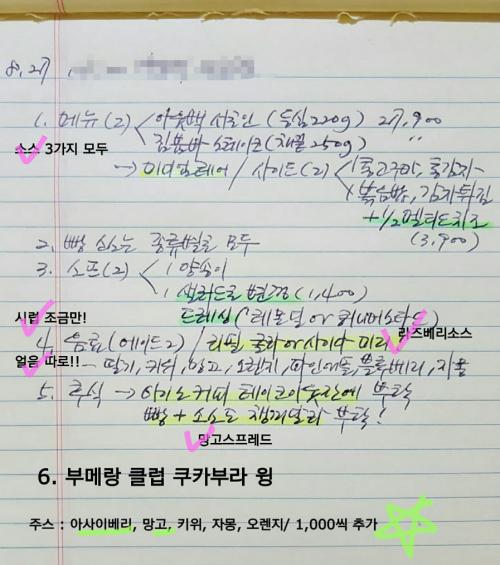 8. 27
1. 메뉴(2) < 아웃백 서로인 (등심 220g) 27,900
소스 3가지 모두
짐붐바 스테이크(채끝 250g) "
→ 미디엄레어 / 사이드(2) < 1 통고구마, 통감자
1 볶음밥, 감자튀김
+ 1/2 멜티드치즈
(3,900)
2. 빵 소스는 종류별로 모두
3. 스프(2) < 1 양송이
1 샐러드로 변경(1,400)
시럽 조금만!
드레싱(레몬딜 or 허니머스타드)
라즈베리소스
4. 음료(에이드2) / 리필 콜라 or 사이다 미리
얼음 따로!!
- 딸기, 키위, 망고, 오렌지, 파인애플, 블루베리, 자몽
5. 후식 → 아이스커피 테이크아웃잔에 부탁
빵 + 소스도 챙겨달라 부탁!
망고스프레드
6. 부메랑 클럽 쿠카부라 윙
주스 : 아사이베리, 망고, 키위, 자몽, 오렌지/ 1,000씩 추가